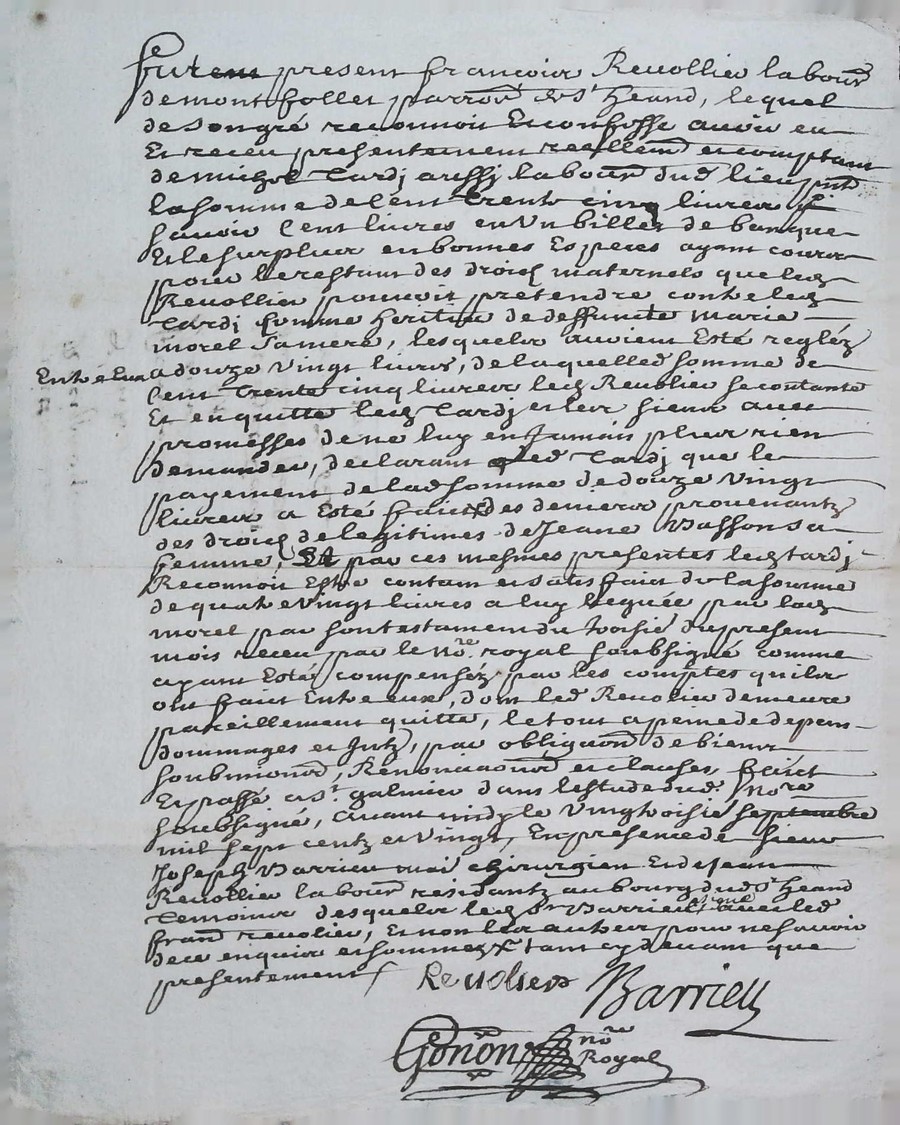 furent present françois Revollier labour
de montfollet parroisse de St heand, lequel
de son gré reconnoit Et confesse avoir eu
Et receu presentement reellemt et comptant
de michel Tardj aussj labour dud lieu pnt
la somme de Cent Trente cinq livres
scavoir Cent livres en Un billet de banque
Et le surplus en bonnes Especes ayant cours
pour le restant des droicts maternels que led
Revollier pouvoit pretendre contre led
Tardj comme heritier de deffuncte marie
morel sa mere, lesquels avoient Esté reglés
Entre Eux a douze Vingt livres, de laquelle d somme de
Cent Trente cinq livres led Revollier se contante
Et en quitte led Tardj et les siens avec
promesses de ne luy en Jamais plus rien
demander, declarant led Tardj que le
payement de lad somme de douze Vingt
livres a Esté fait des deniers provenantz
des droicts de legitimes de Jeane Basson sa
femme, Et par ces mesmes presentes led tardj
Reconnoit Estre contant et satisfaict de la somme
de quatre Vingt livres a luy leguée par lad
morel par son testament du troisie du present
mois receu par le nore royal soubsigné comme
ayant Esté compensés par les comptes quils
ont faict Entre eux, dont led Revolier demeure
pareillement quitte, le tout a peine de depens
dommages et Intz, par obligaon de biens
soubmions, Renonciaons et clauses, faict
Et passé a St galmier dans lestude dud nore
soubsigné, avant midy le Vingtroisie septembre
mil sept centz et Vingt, En presence de sieur
Joseph Barrieu mai chirurgien Et de Jean
Revollier labour residantz au bourg dud St heand
Temoins desquels led Sr Barrieu a signé avec led
frans revolier, Et non les autres pour ne scavoir
de ce enquis et sommes tant cy devant que
presentement
Revolier Barrieu
Gonon nore
Royal